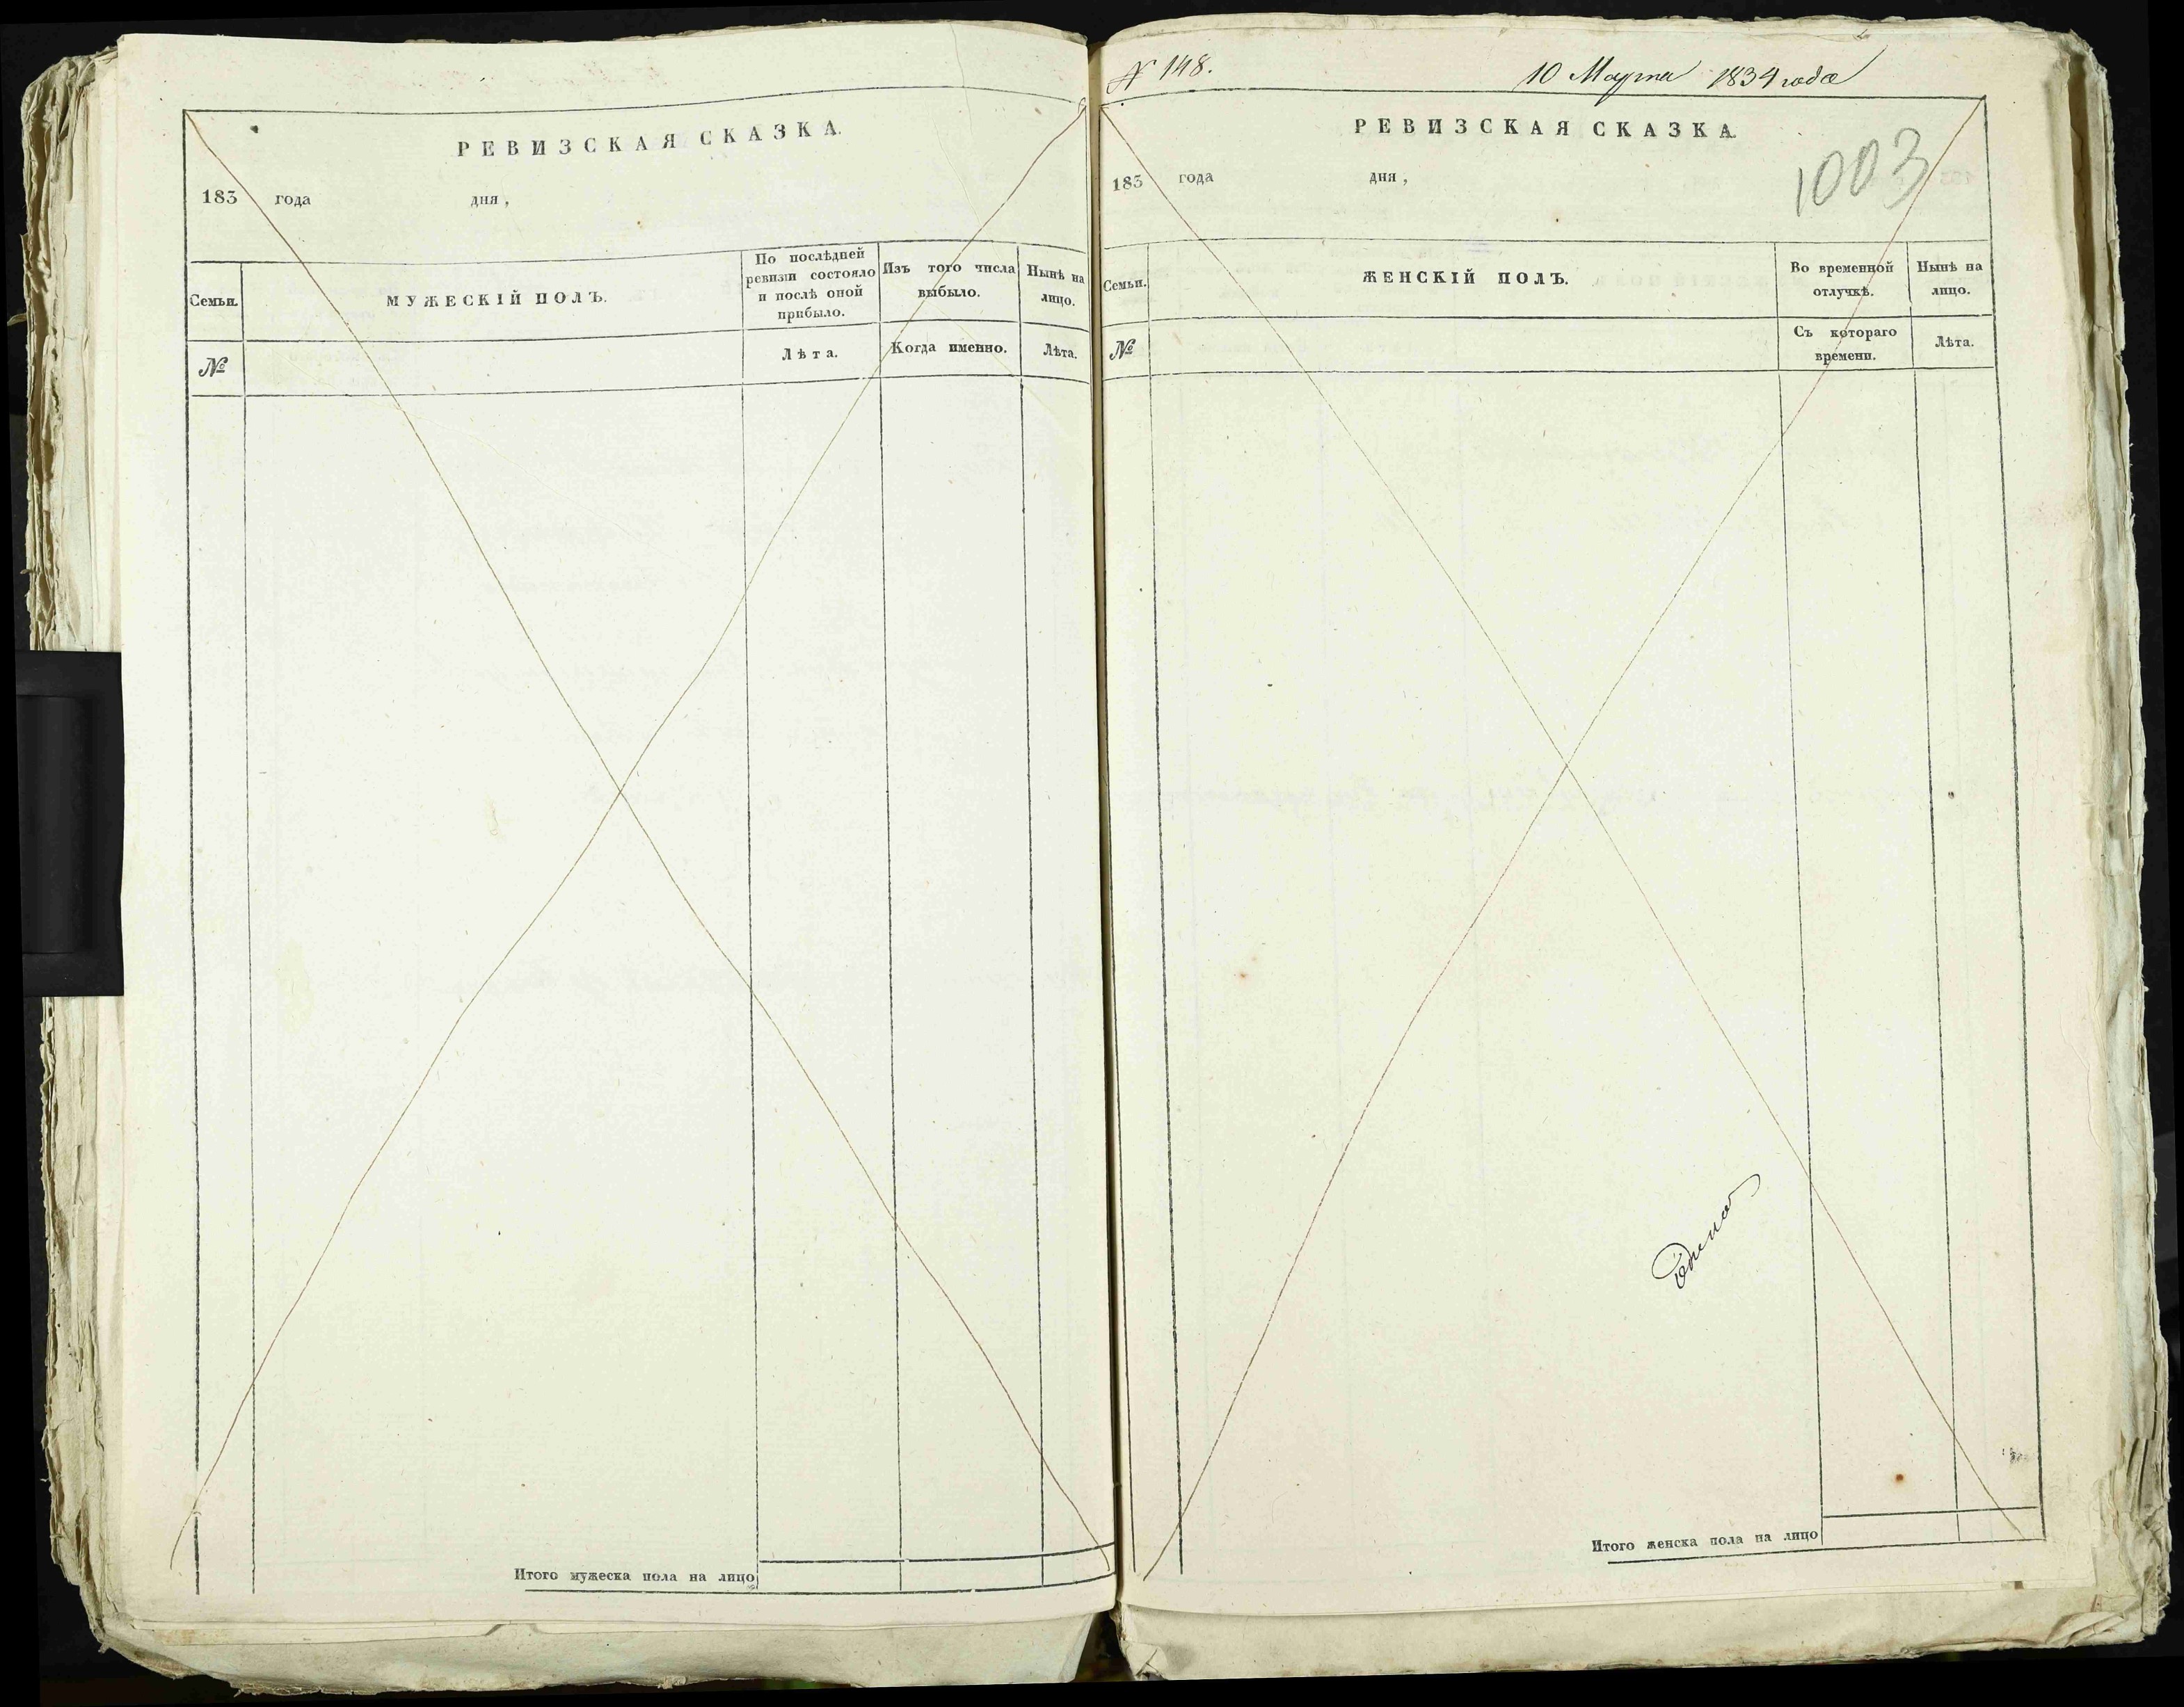 РЕВИЗСКАЯ СКАЗКА.
183 года дня,
Семьи. МУЖЕСКІЙ ПОЛЪ. По послѣдней ревизіи состояло и послѣ оной прибыло. Изъ того числа выбыло. Нынѣ на лицо.
№ Лѣта. Когда именно. Лѣта.
Итого мужеска пола на лицо
№ 148. 10 Марта 1834 года
РЕВИЗСКАЯ СКАЗКА.
1003
183 года дня,
Семьи. ЖЕНСКІЙ ПОЛЪ. Во временной отлучкѣ. Нынѣ на лицо.
№ Съ котораго времени. Лѣта.
Итого женска пола на лицо